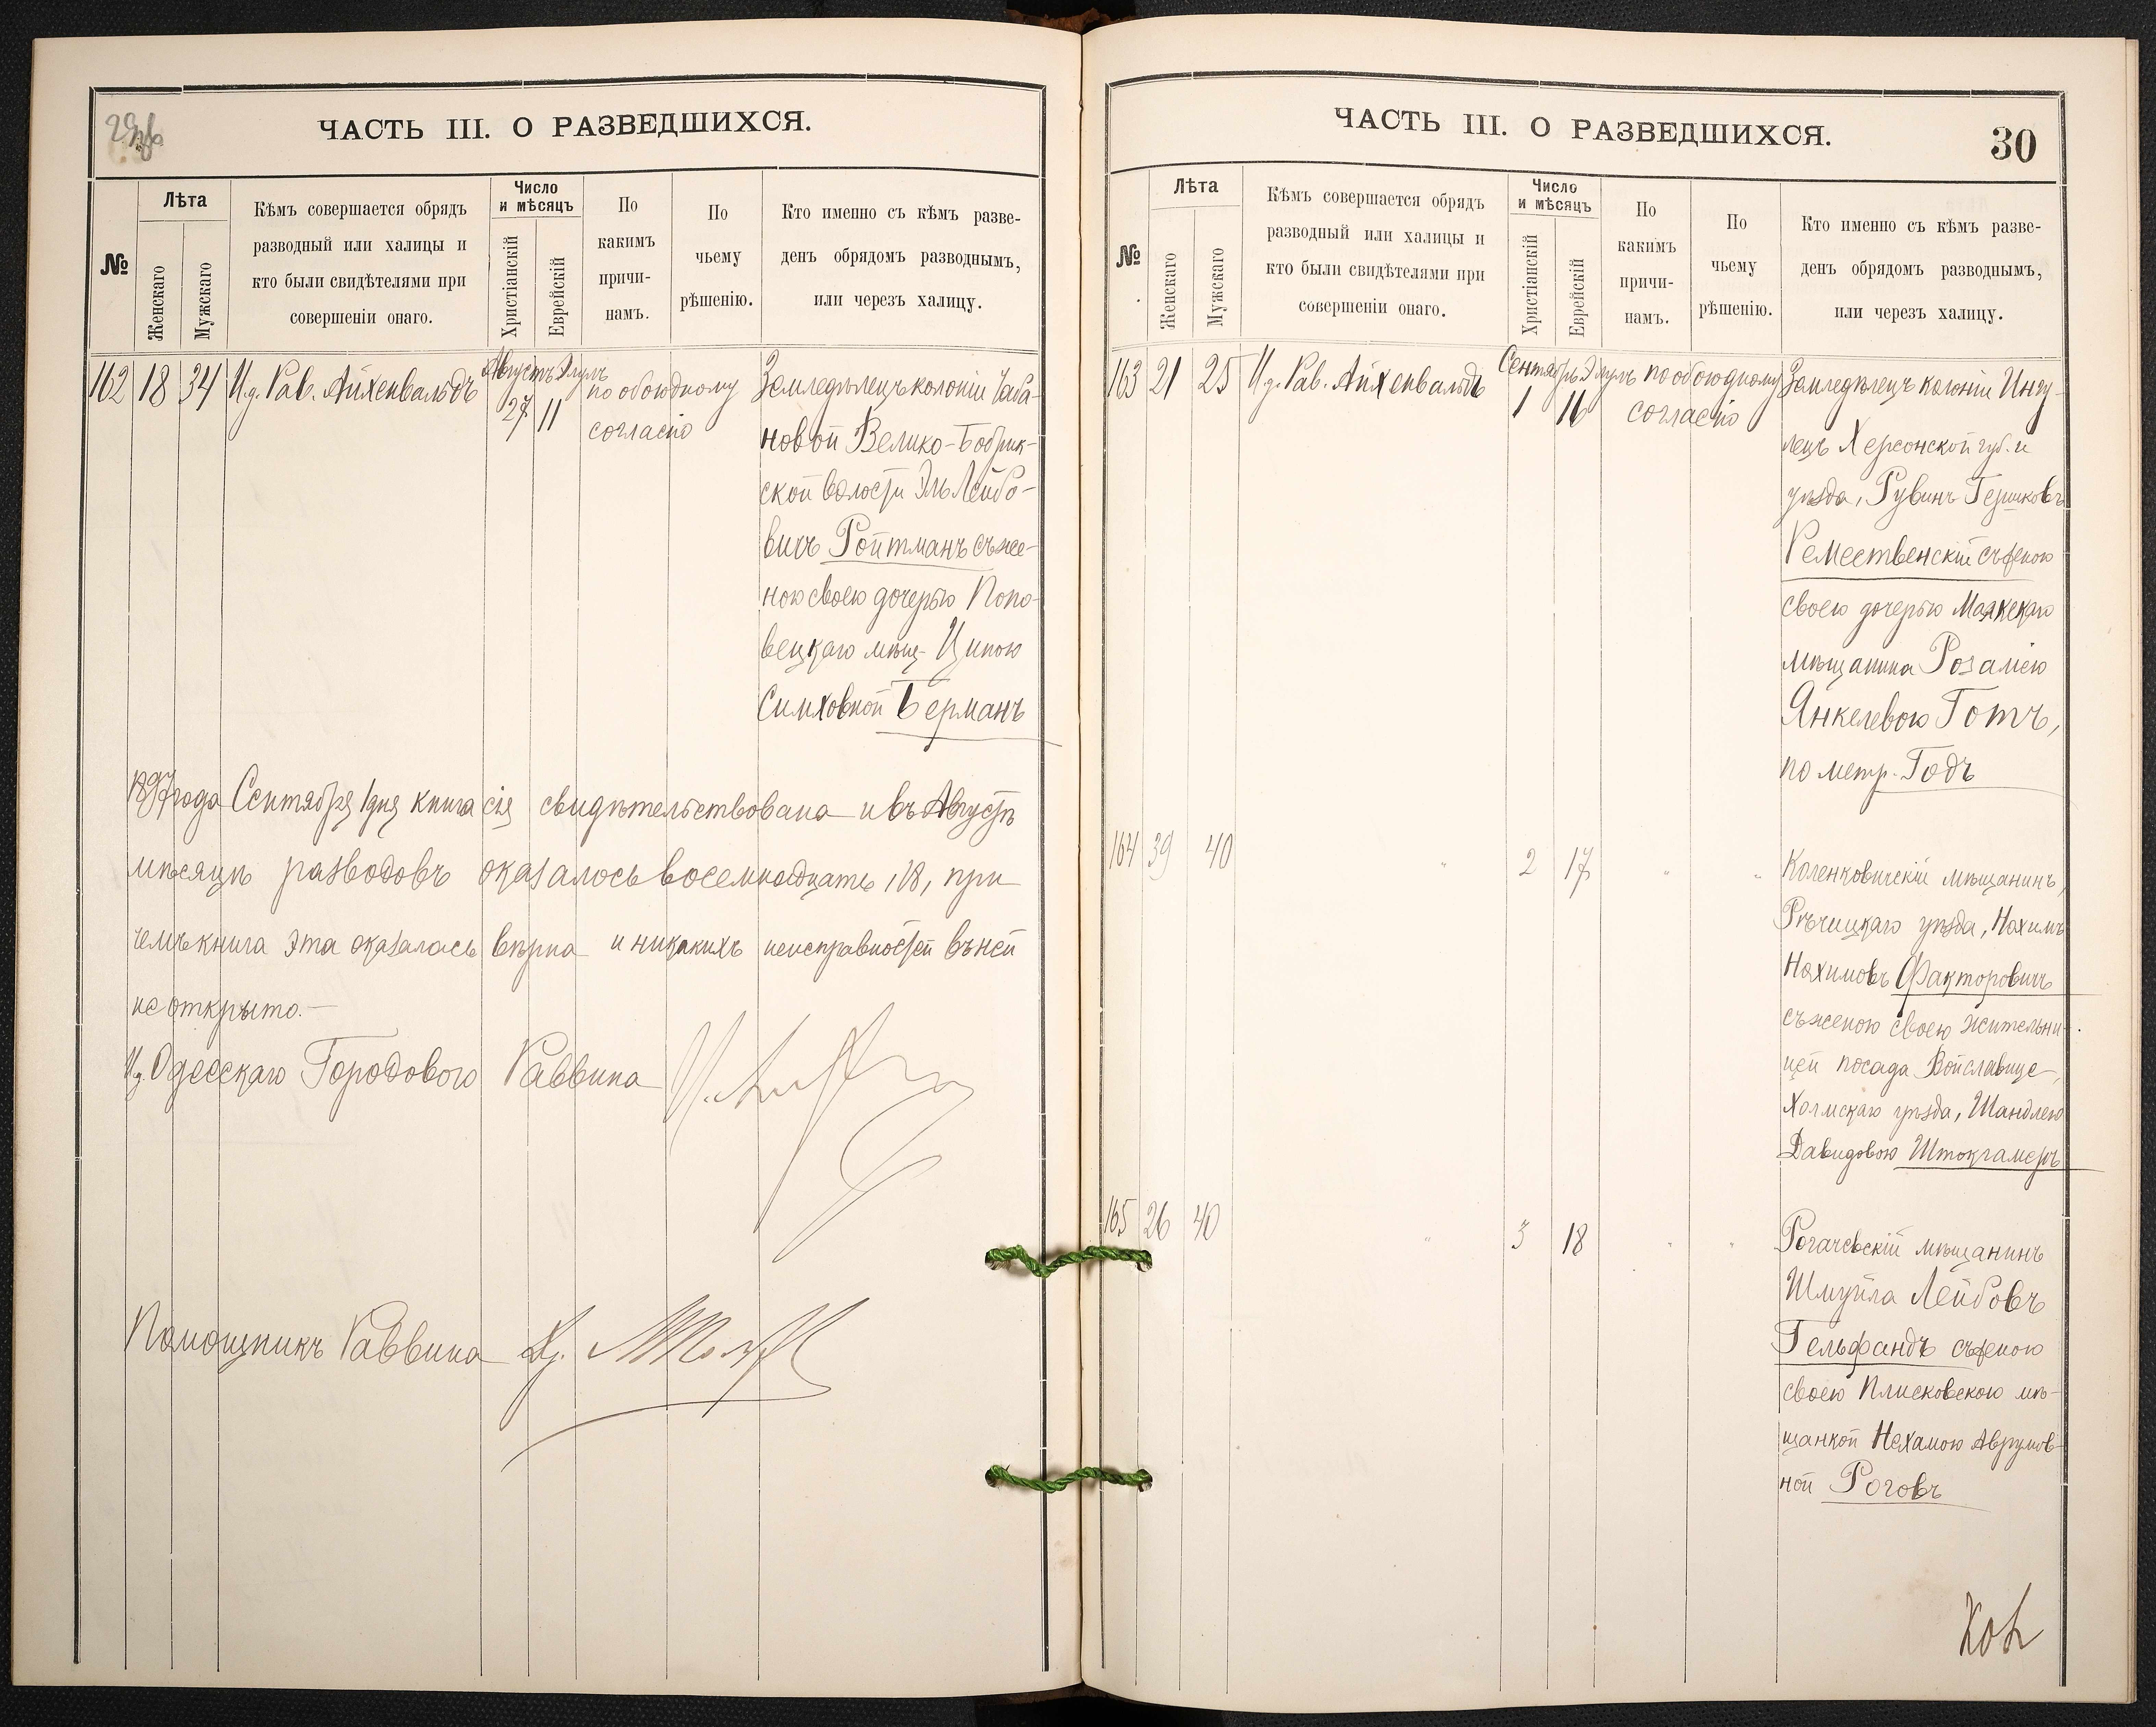 ЧАСТЬ III. О РАЗВЕДШИХСЯ.
№
Лѣта
Женскаго
Мужскаго
Кѣмъ совершается обрядъ
разводный или халицы и
кто были свидѣтелями при
совершеніи онаго.
Число
и мѣсяцъ
Христіанскій
Еврейскій
По
какимъ
причи-
намъ.
По
чьему
рѣшенію.
Кто именно съ кѣмъ разве-
денъ обрядомъ разводнымъ,
или черезъ халицу.
162 18 34 И.д. Рав. Айхенвальдъ
Августъ Элулъ
27 11
по обоюдному
согласію
Земледѣлецъ колоніи Чаба-
новой Велико-Бобрик-
ской волости Эль Лейбо-
вичъ Ройтманъ съ же-
ною своею дочерью Попо-
вецкаго мѣщ. Ципою
Симховной Берманъ
1897 года Сентября 1 дня книга сія свидѣтельствована и въ Августѣ
мѣсяцѣ разводовъ оказалось восемнадцать, 18, при
чемъ книга эта оказалась вѣрна и никакихъ неисправностей въ ней
не открыто.—
И.д. Одесскаго Городового Раввина
Помощникъ Раввина
ЧАСТЬ III. О РАЗВЕДШИХСЯ.
30
№
Лѣта
Женскаго
Мужскаго
Кѣмъ совершается обрядъ
разводный или халицы и
кто были свидѣтелями при
совершеніи онаго.
Число
и мѣсяцъ
Христіанскій
Еврейскій
По
какимъ
причи-
намъ.
По
чьему
рѣшенію.
Кто именно съ кѣмъ разве-
денъ обрядомъ разводнымъ,
или черезъ халицу.
163 21 25 И.д. Рав. Айхенвальдъ
Сентябрь Элулъ
1 16
по обоюдному
согласію
Земледѣлецъ колоніи Ингу-
лецъ Херсонской губ. и
уѣзда, Рувинъ Гершковъ
Ремественскій съ женою
своею дочерью Маякскаго
мѣщанина Розаліею
Янкелевою Готъ,
по метр. Годъ
164 39 40 " 2 17 " "
Коленковичскій мѣщанинъ,
Рѣчицкаго уѣзда, Нохимъ
Нохимовъ Факторовичъ
съ женою своею жительни-
цей посада Войславице,
Холмскаго уѣзда, Шандлею
Давидовою Штокгамеръ
165 26 40 " 3 18 " "
Рогачевскій мѣщанинъ
Шмуйла Лейбовъ
Гельфандъ съ женою
своею Плисковскою мѣ-
щанкой Нехамою Аврумов-
ной Роговъ